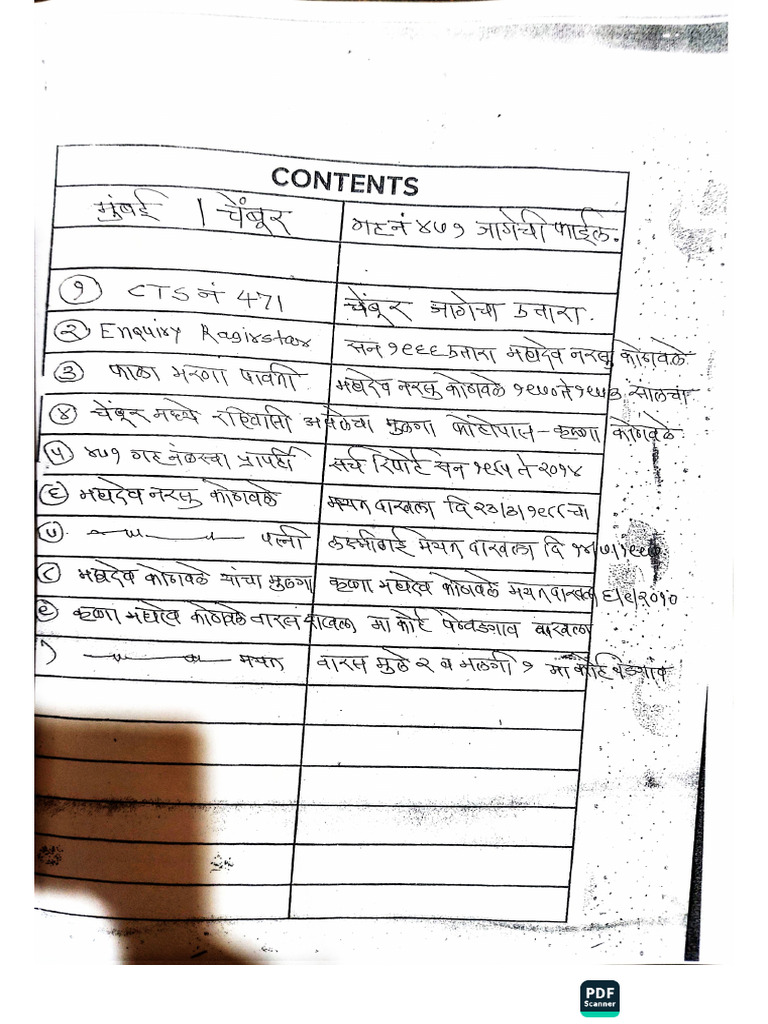 CONTENTS
मुंबई / चेंबूर गट नं ४७१ जागेची फाईल.
१ CTS नं 471 चेंबूर जागेचा उतारा.
२ Enquiry Ragirstar सन १९६६ उतारा महादेव नरसु कोगवळे
३ फाळा भरणा पावती महादेव नरसु कोगवळे १९७० ते सालचा
४ चेंबूर मध्ये रहिवासी असलेचा मुलगा कृष्णा कोगवळे
५ ४७१ गट प्रापर्टी सर्च रिपोर्ट सन १९६५ ते २०१४
६ महादेव नरसु कोगवळे मयत दाखला दि २३/३/१९८८चा
७ —„—„— पत्नी लक्ष्मीबाई मयत दाखला दि
८ महादेव कोगवळे यांचा मुलगा कृष्णा महादेव कोगवळे मयत दाखला ६/८/२०१०
९ कृष्णा महादेव कोगवळे वारस दाखला मा कोर्ट दाखला
—„—„— मयत वारस मुले २ व मुलगी १ मा कोर्ट
PDF
Scanner